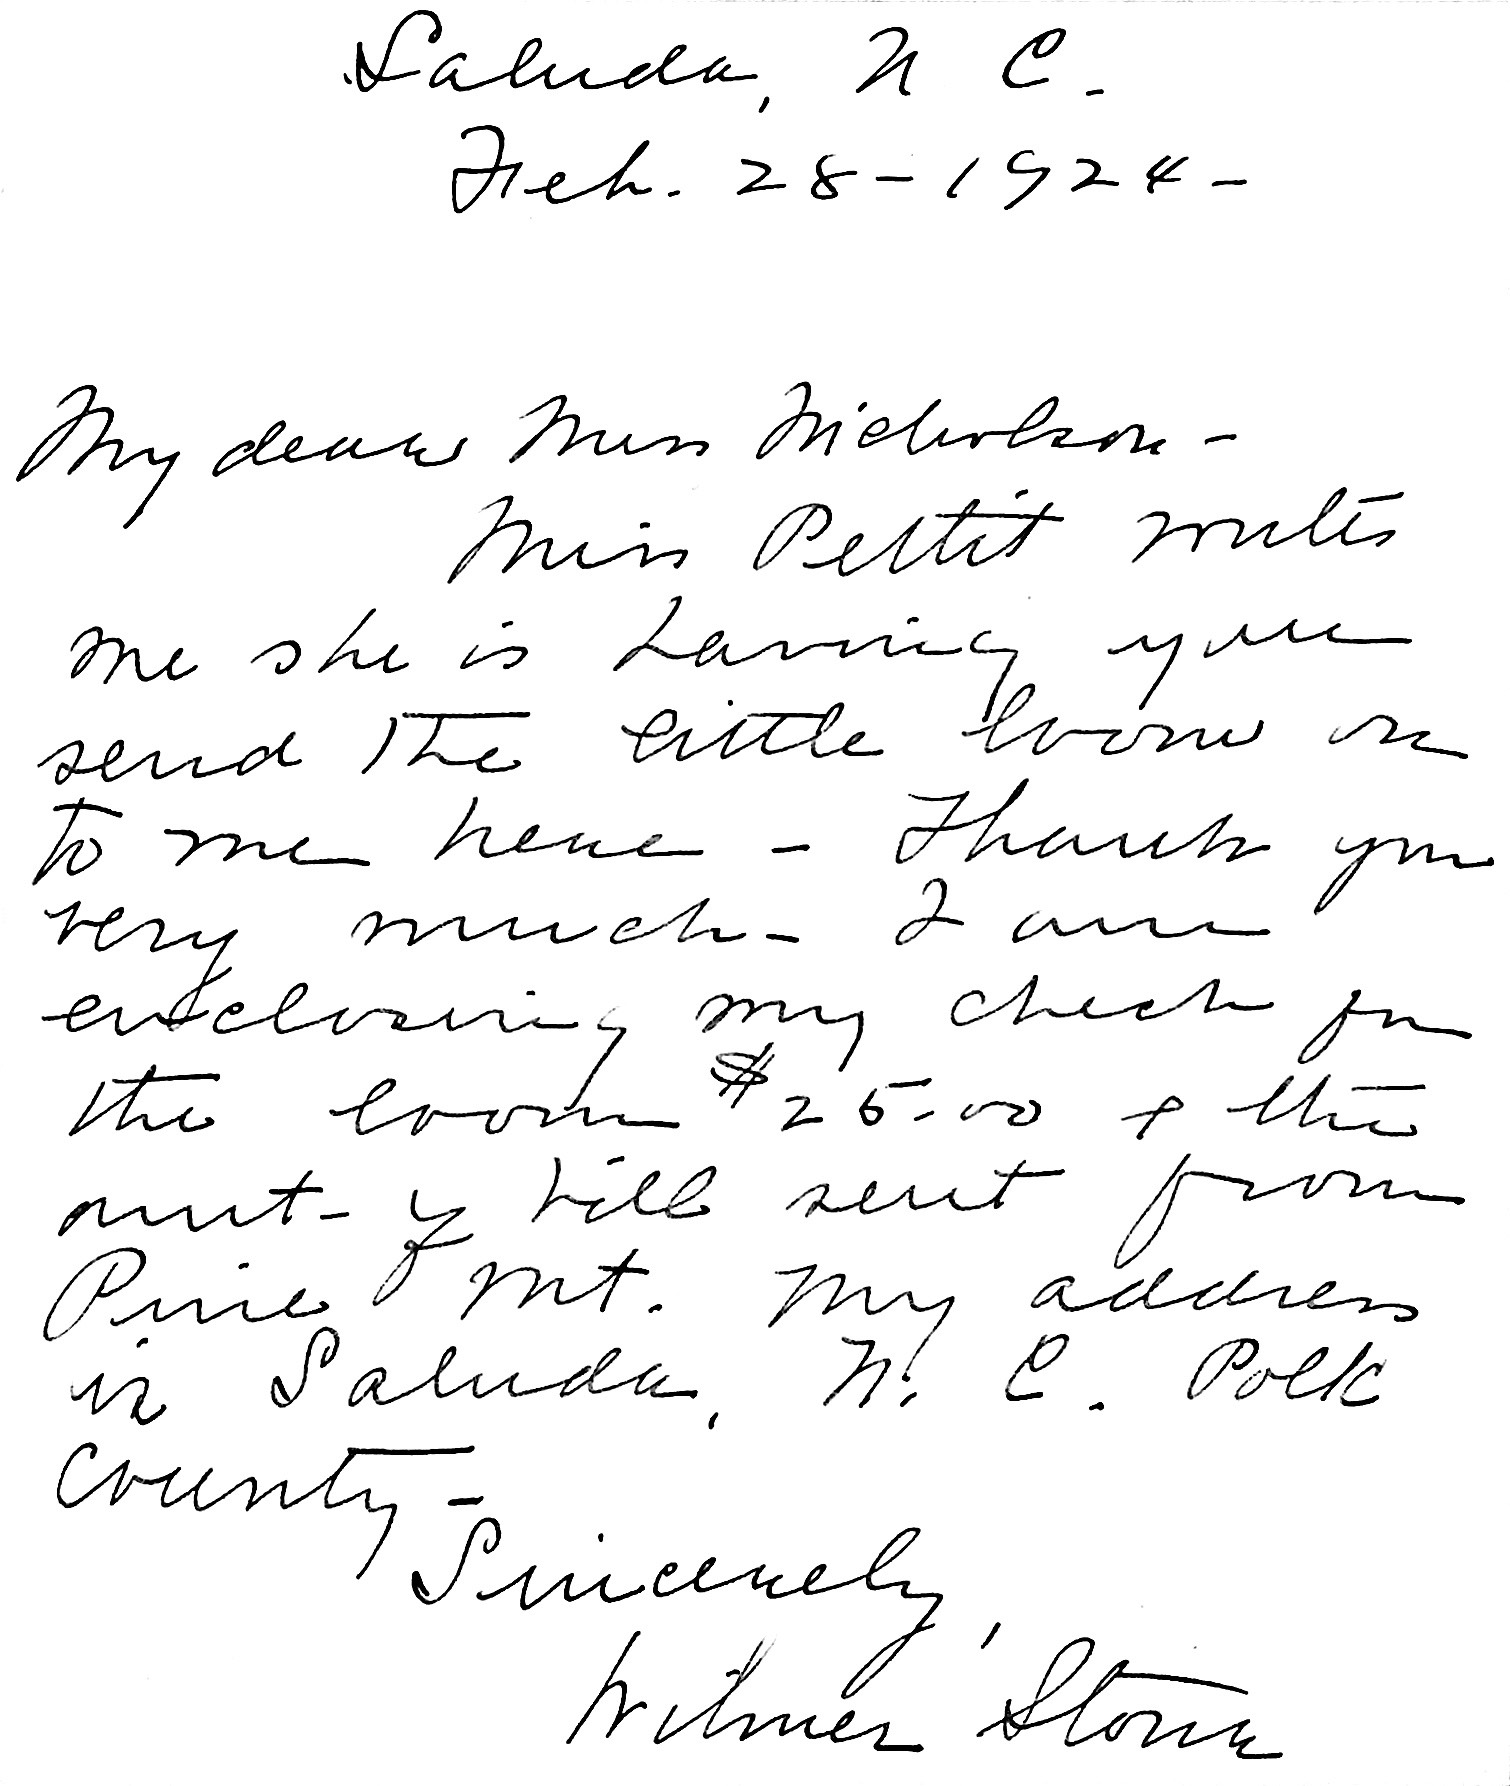 Saluda, N C.
Feb. 28-1924-
My dear Miss Nicholson-
Miss Pettit writes
me she is having you
send the little loom on
to me here - Thank you
very much- I am
enclosing my check for
the loom $25.00 & the
amt- of bill sent from
Pine Mt. My address
is Saluda, N. C. Polk
County-
Sincerely,
Wilmer Stone